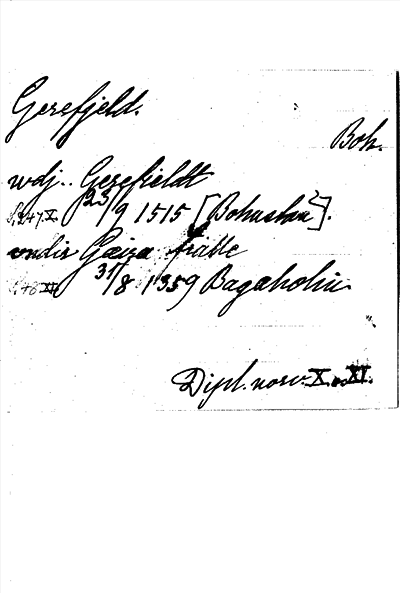 Gerefjeld.
Boh.
wdj.. Gerefieldt
S. 247 X. 23/9 1515 [Bohuslan?].
vndir Gæira fialle
S. 46 XI. 31/8 1359 Bagaholm
Dipl. norv. X. o. XI.